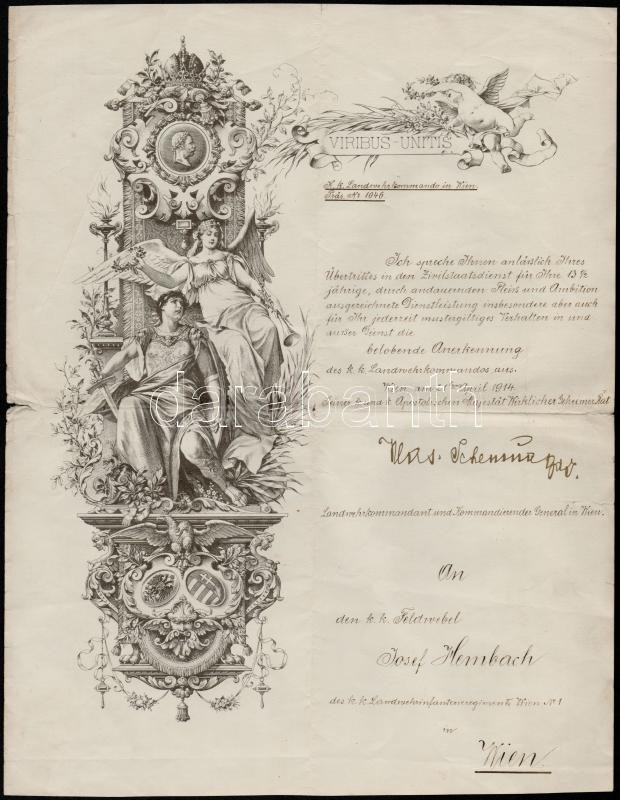 VIRIBUS-UNITIS
K. k. Landwehrkommando in Wien.
Präs. Nr. 1046.
Ich spreche Ihnen anläßlich Ihres
Übertrittes in den Zivilstaatsdienst für Ihre 13 ½
jährige, durch andauernden Fleiß und Ambition
ausgezeichnete Dienstleistung insbesondere aber auch
für Ihr jederzeit mustergiltiges Verhalten in und
außer Dienst die
belobende Anerkennung
des k. k. Landwehrkommandos aus.
Wien, am April 1914.
Seiner k. und k. Apostolischen Majestät Wirklicher Geheimer Rat
darabanth
Landwehrkommandant und Kommandierender General in Wien.
An
den k. k. Feldwebel
Josef Hembach
des k. k. Landwehrinfanterieregiments Wien Nº 1
in
Wien.